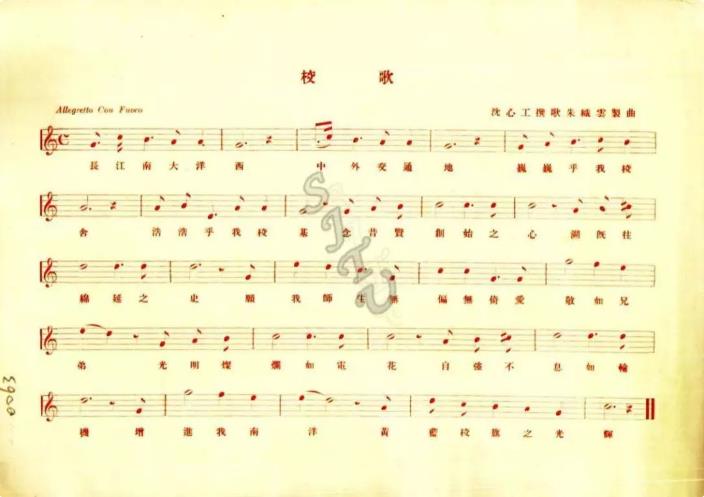 校歌
Allegretto Con Fuoco
沈心工撰歌朱織雲製曲
長江南大洋西中外交通地巍巍乎我校
舍浩浩乎我校基念昔賢創始之心溯既往
綿延之史願我師生無偏無倚愛敬如兄
弟光明燦爛如電花自彊不息如輪
機增進我南洋黃藍校旗之光輝
SJTU